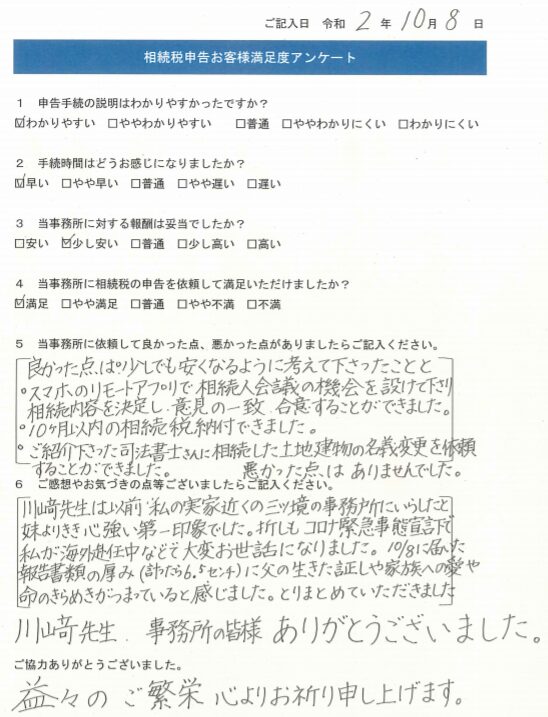 ご記入日 令和 2 年 10 月 8 日
相続税申告お客様満足度アンケート
1 申告手続の説明はわかりやすかったですか？
☑わかりやすい □ややわかりやすい □普通 □ややわかりにくい □わかりにくい
2 手続時間はどうお感じになりましたか？
☑早い □やや早い □普通 □やや遅い □遅い
3 当事務所に対する報酬は妥当でしたか？
□安い ☑少し安い □普通 □少し高い □高い
4 当事務所に相続税の申告を依頼して満足いただけましたか？
☑満足 □やや満足 □普通 □やや不満 □不満
5 当事務所に依頼して良かった点、悪かった点がありましたらご記入ください。
良かった点は°少しでも安くなるように考えて下さったことと
°スマホのリモートアプリで相続人会議の機会を設けて下さり
相続内容を決定し、意見の一致、合意することができました。
°10ヶ月以内の相続税納付できました。
°ご紹介下さった司法書士さんに相続した土地建物の名義変更を依頼
することができました。 悪かった点は ありませんでした。
6 ご感想やお気づきの点等ございましたらご記入ください。
川﨑先生は以前 私の実家近くの三ツ境の事務所にいらしたと
妹よりきき心強い第一印象でした。折しもコロナ緊急事態宣言下で
私が海外赴任中などで大変お世話になりました。10/8に届いた
報告書類の厚み(計ったら6.5センチ)に父の生きた証しや家族への愛や
命のきらめきがつまっていると感じました。とりまとめていただきました
川﨑先生、事務所の皆様 ありがとうございました。
ご協力ありがとうございました。
益々の ご繁栄 心よりお祈り申し上げます。